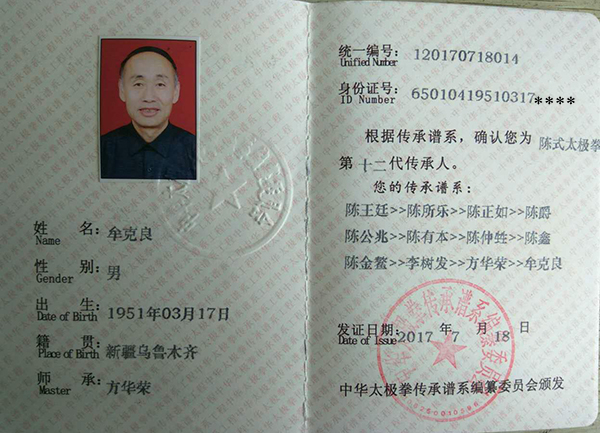 姓 名: 牟克良
Name
性 别: 男
Gender
出 生: 1951年03月17日
Date of Birth
籍 贯: 新疆乌鲁木齐
Place of Birth
师 承: 方华荣
Master
统一编号: 120170718014
Unified Number
身份证号: 65010419510317****
ID Number
根据传承谱系，确认您为 陈式太极拳
第 十二代传承人。
您的传承谱系:
陈王廷>>陈所乐>>陈正如>>陈爵
陈公兆>>陈有本>>陈仲甡>>陈鑫
陈金鳌>>李树发>>方华荣>>牟克良
发证日期: 2017 年 7 月 18 日
Date of Issue
中华太极拳传承谱系编纂委员会颁发